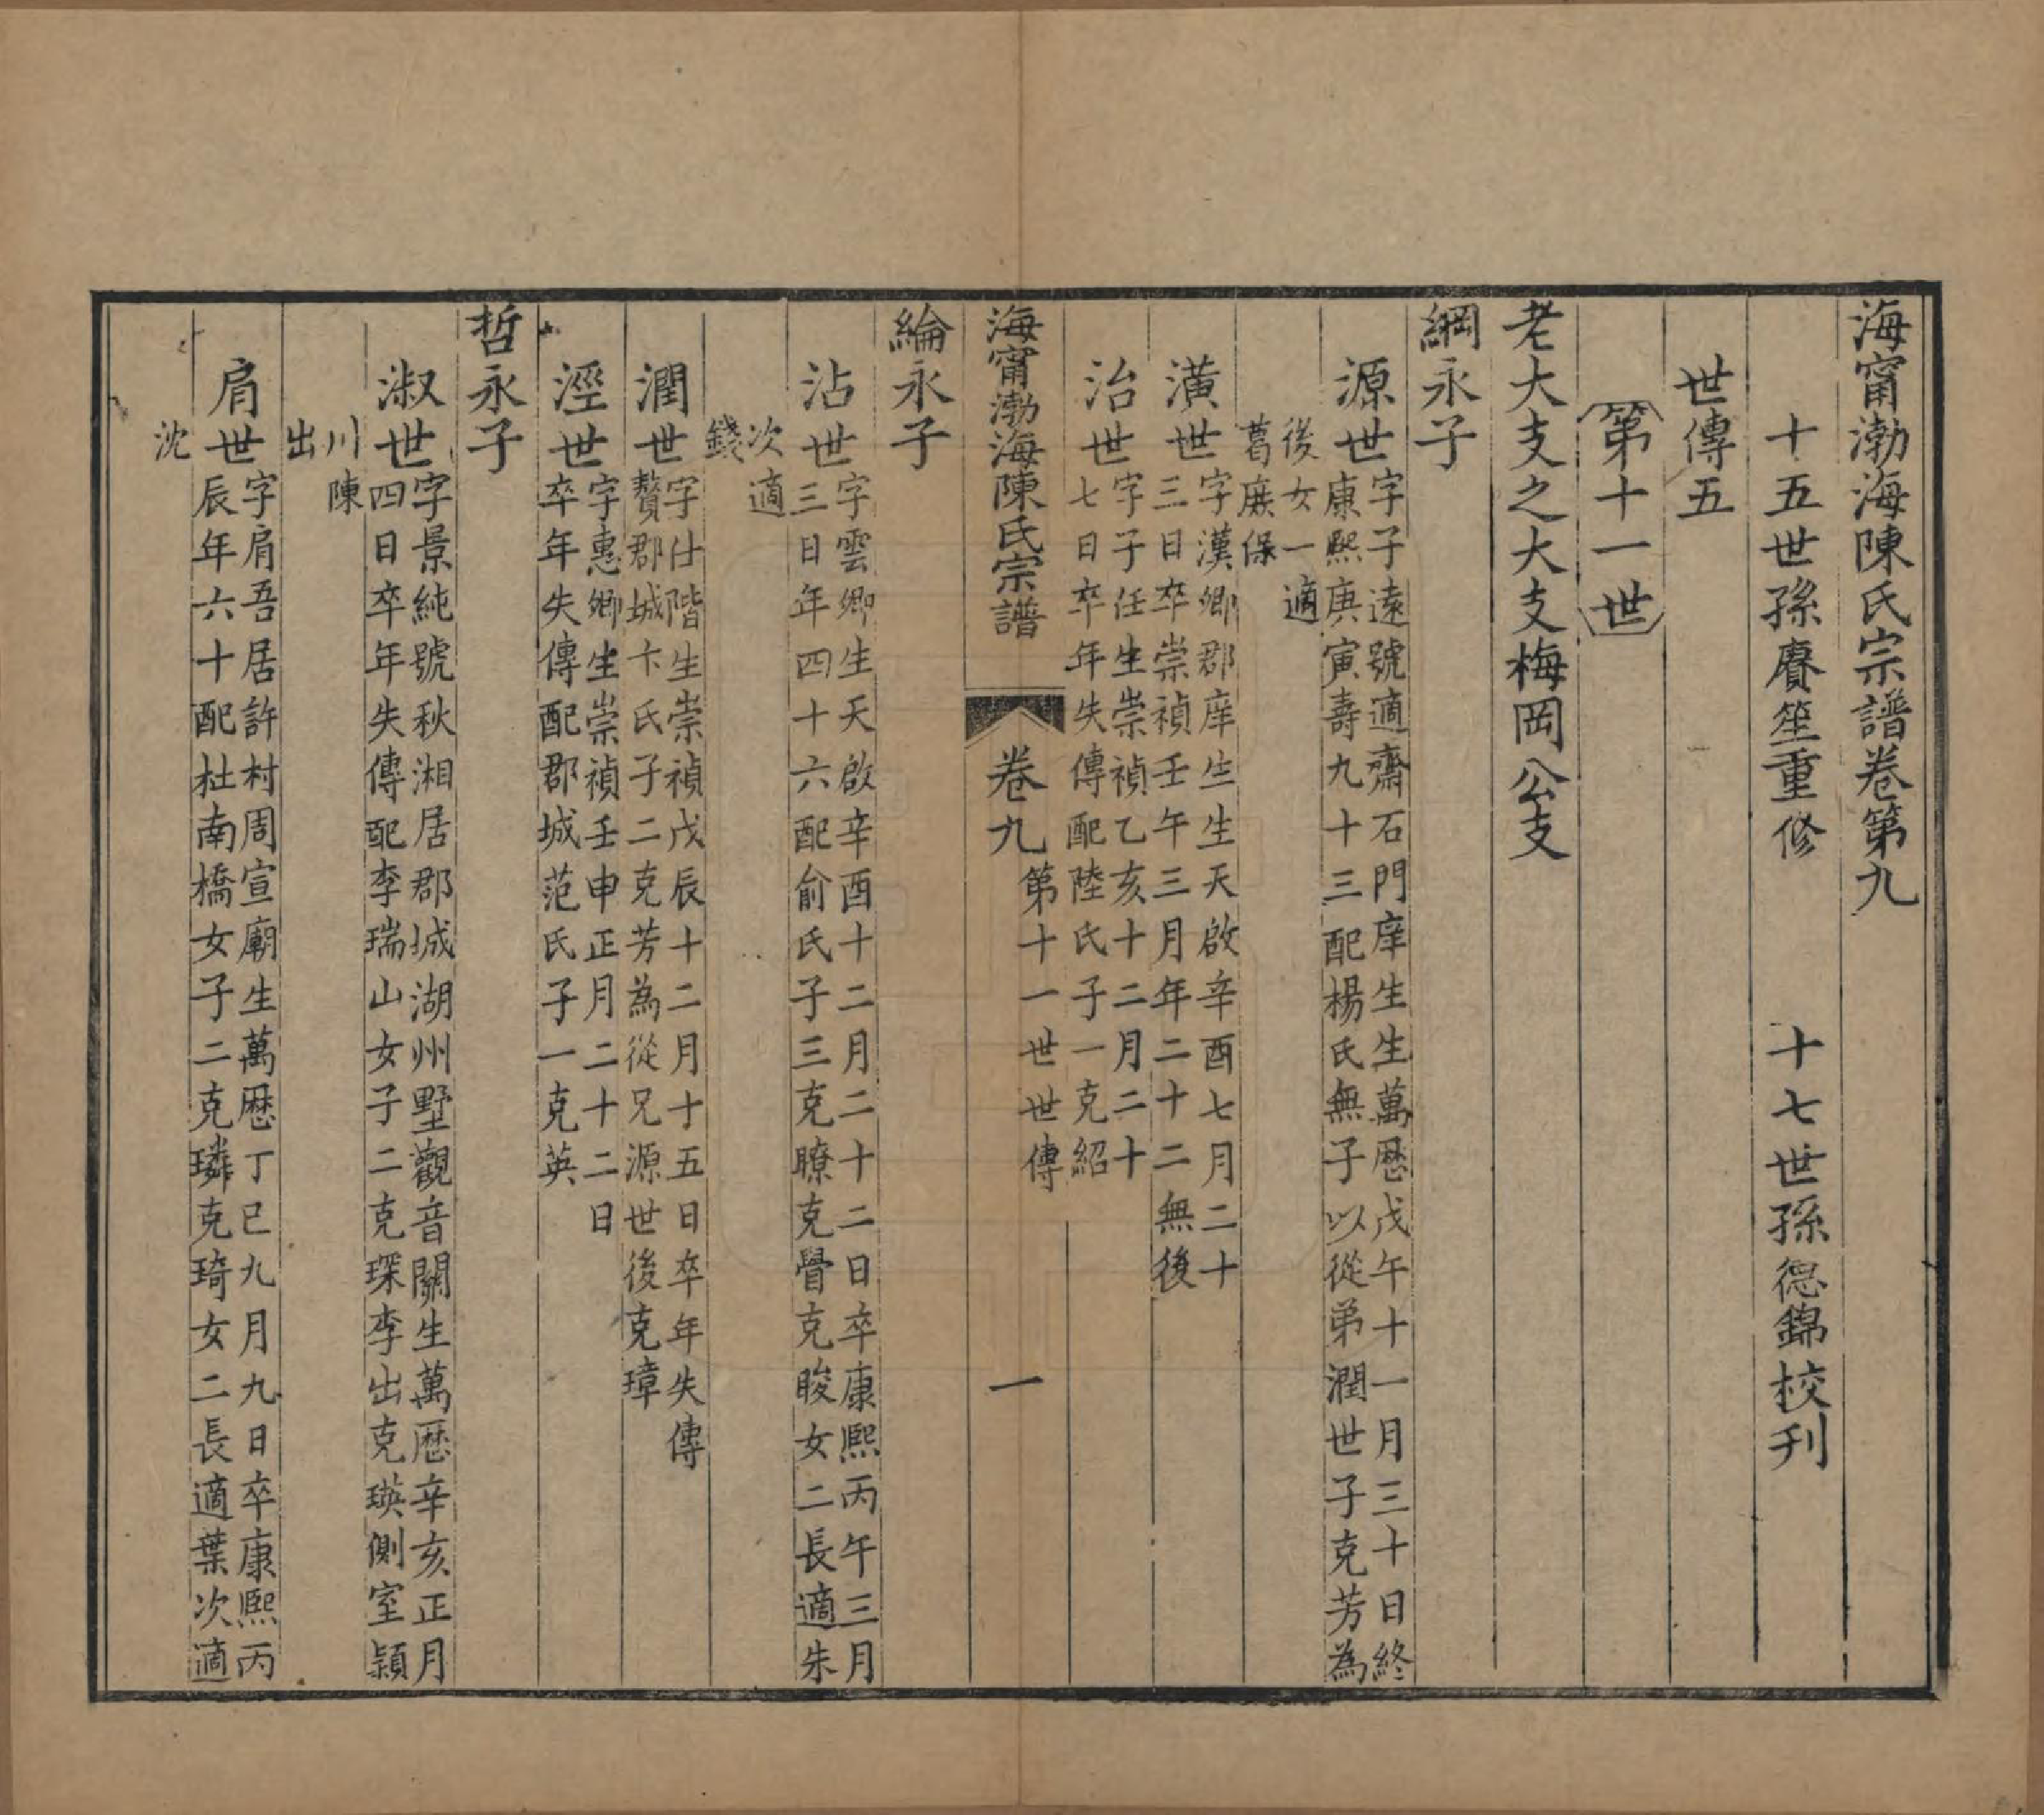 海甯渤海陳氏宗譜卷第九
十五世孫賡笙重修　十七世孫德錦校刊
世傳五
第十一世
老大支之大支梅岡公支
綱永子
源世字子遠號適齋石門庠生生萬歷戊午十一月三十日終
康熙庚寅壽九十三配楊氏無子以從弟潤世子克芳為
後女一適
葛熊保
潢世字漢卿郡庠生生天啟辛酉七月二十
三日卒崇禎壬午三月年二十二無後
治世字子任生崇禎乙亥十二月二十
七日卒年失傳配陸氏子一克紹
海甯渤海陳氏宗譜　卷九　第十一世世傳　一
綸永子
沾世字雲卿生天啟辛酉十二月二十二日卒康熙丙午三月
三日年四十六配俞氏子三克瞭克覺克晙女二長適朱
次適
錢
潤世字仕階生崇禎戊辰十二月十五日卒年失傳
贅郡城卞氏子二克芳為從兄源世後克璋
涇世字惠卿生崇禎壬申正月二十二日
卒年失傳配郡城范氏子一克英
哲永子
淑世字景純號秋湘居郡城湖州墅觀音關生萬歷辛亥正月
四日卒年失傳配李瑞山女子二克琛李出克瑛側室潁
川陳
出
肩世字肩吾居許村周宣廟生萬歷丁巳九月九日卒康熙丙
辰年六十配杜南橋女子二克璘克琦女二長適葉次適
沈